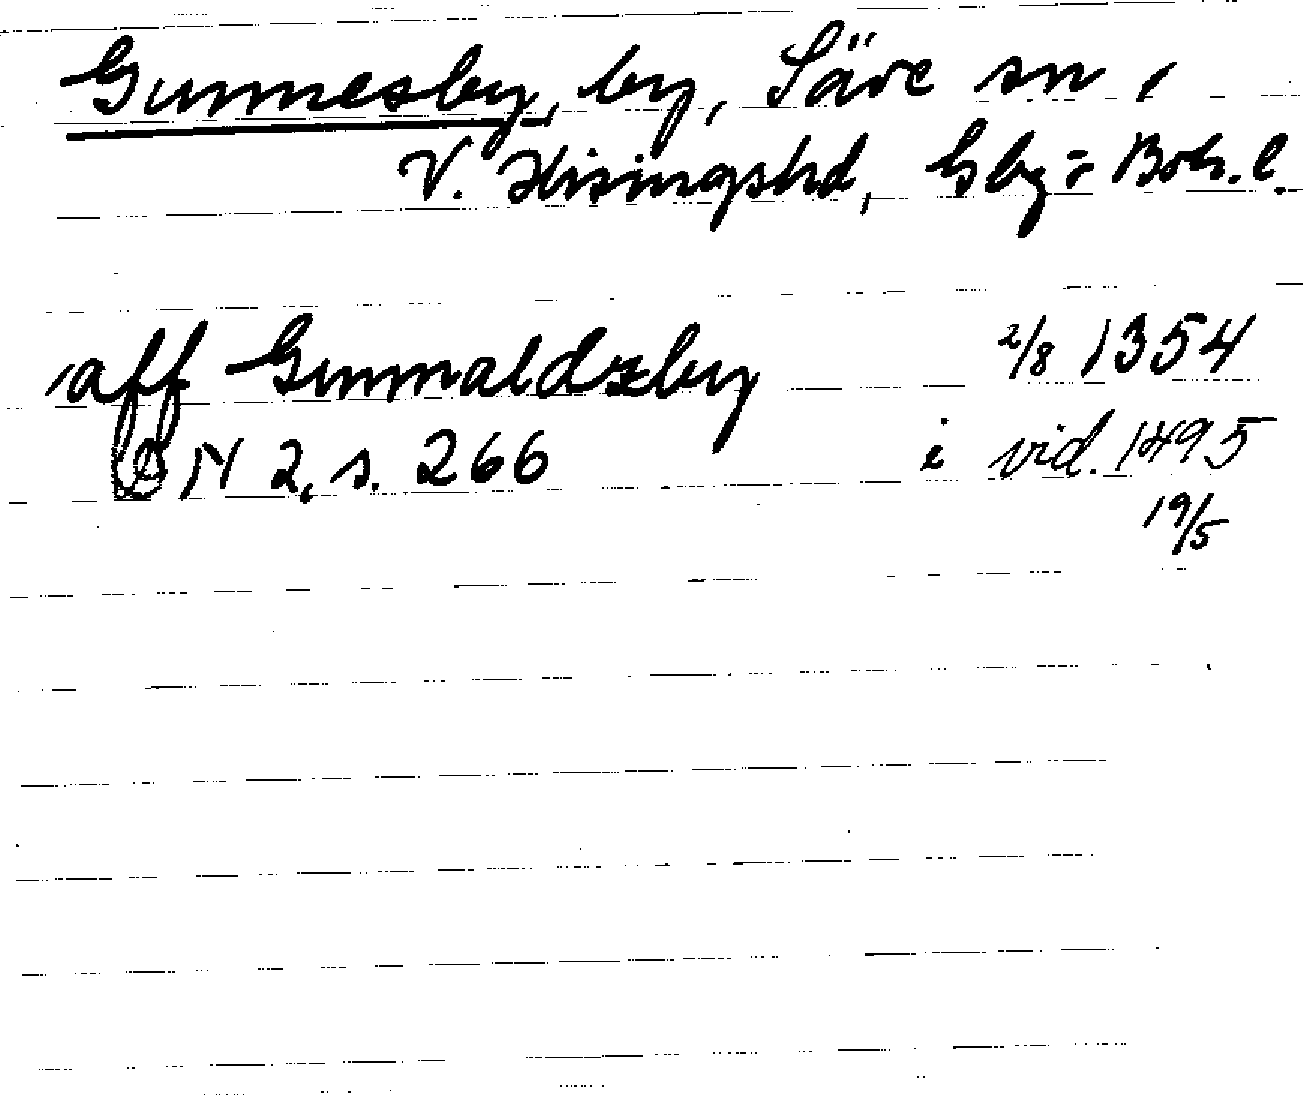 Gunnesby, by, Säve sn,
V. Hisingshd, Gbg: Boh. l.
aff Gunnaldzby 2/8 1354
DN 2, s. 266 i vid. 1495
19/5